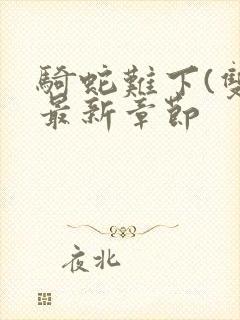 騎蛇難下(雙
最新章節
夜北